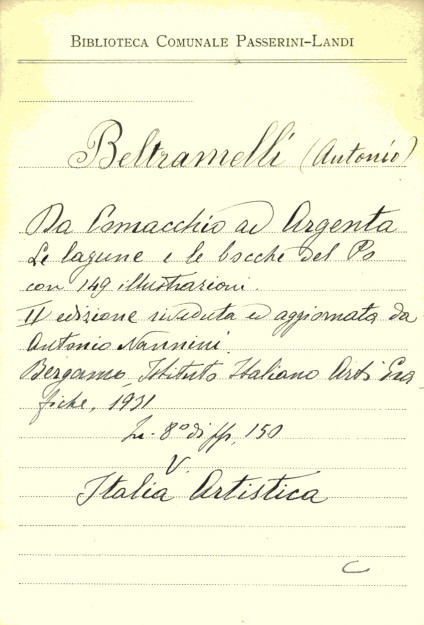 BIBLIOTECA COMUNALE PASSERINI-LANDI
Beltramelli (Antonio)
Da Comacchio ad Argenta
Le lagune e le bocche del Po
con 149 illustrazioni.
II edizione riveduta ed aggiornata da
Antonio Nannini.
Bergamo, Istituto Italiano Arti Gra
fiche, 1931
In-8° di pp. 150
V.
Italia Artistica
C